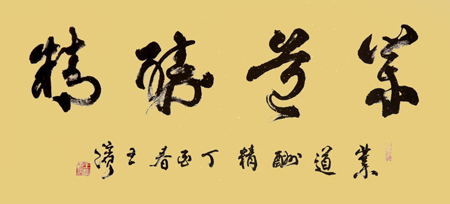 業道酬精
業道酬精 丁酉春 王